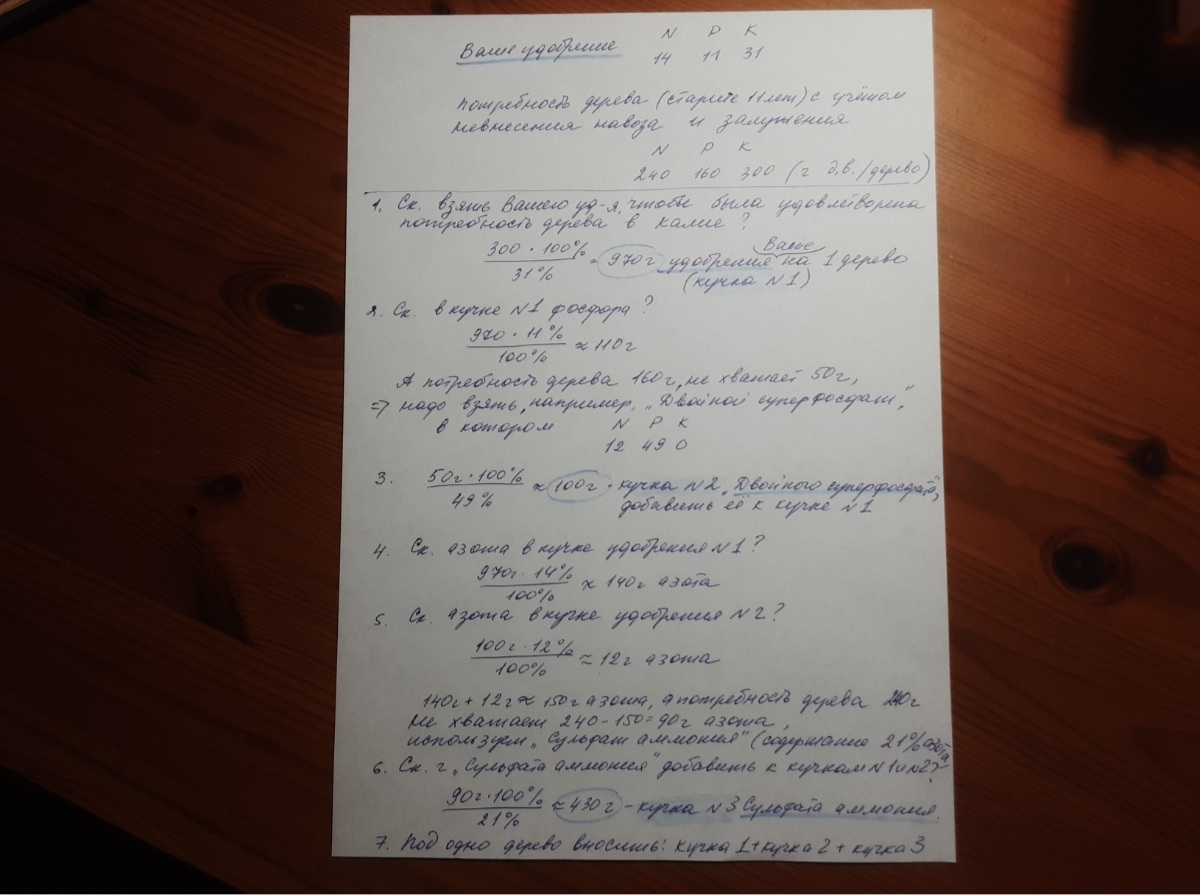 N P K
Ваше удобрение 14 11 31
Потребность дерева (старше 11 лет) с учётом
невнесения навоза и залужения
N P K
240 160 300 (г д.в./дерево)
1. Ск. взять Вашего уд-я, чтобы была удовлетворена
потребность дерева в калие?
300 · 100% / 31% = 970г удобрения на 1 дерево
Ваше
(кучка N1)
2. Ск. в кучке N1 фосфора?
970 · 11% / 100% ≈ 110г
А потребность дерева 160г, не хватает 50г,
=> надо взять, например, „Двойной суперфосфат",
в котором N P K
12 49 0
3. 50г · 100% / 49% ≈ 100г - кучка N2 „Двойного суперфосфата",
добавить её к кучке N1
4. Ск. азота в кучке удобрения N1?
970г · 14% / 100% ≈ 140г азота
5. Ск. азота в кучке удобрения N2?
100г · 12% / 100% ≈ 12г азота
140г + 12г ≈ 150г азота, а потребность дерева 240г
Не хватает 240 - 150 = 90г азота,
используем „Сульфат аммония" (содержание 21% азота
6. Ск. г „Сульфата аммония" добавить к кучкам N1 и N2?
90г · 100% / 21% ≈ 430г - кучка N3 Сульфата аммония.
7. Под одно дерево вносить: кучка 1 + кучка 2 + кучка 3